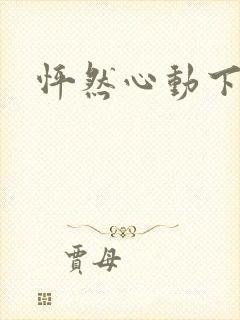 怦然心動下
賈母